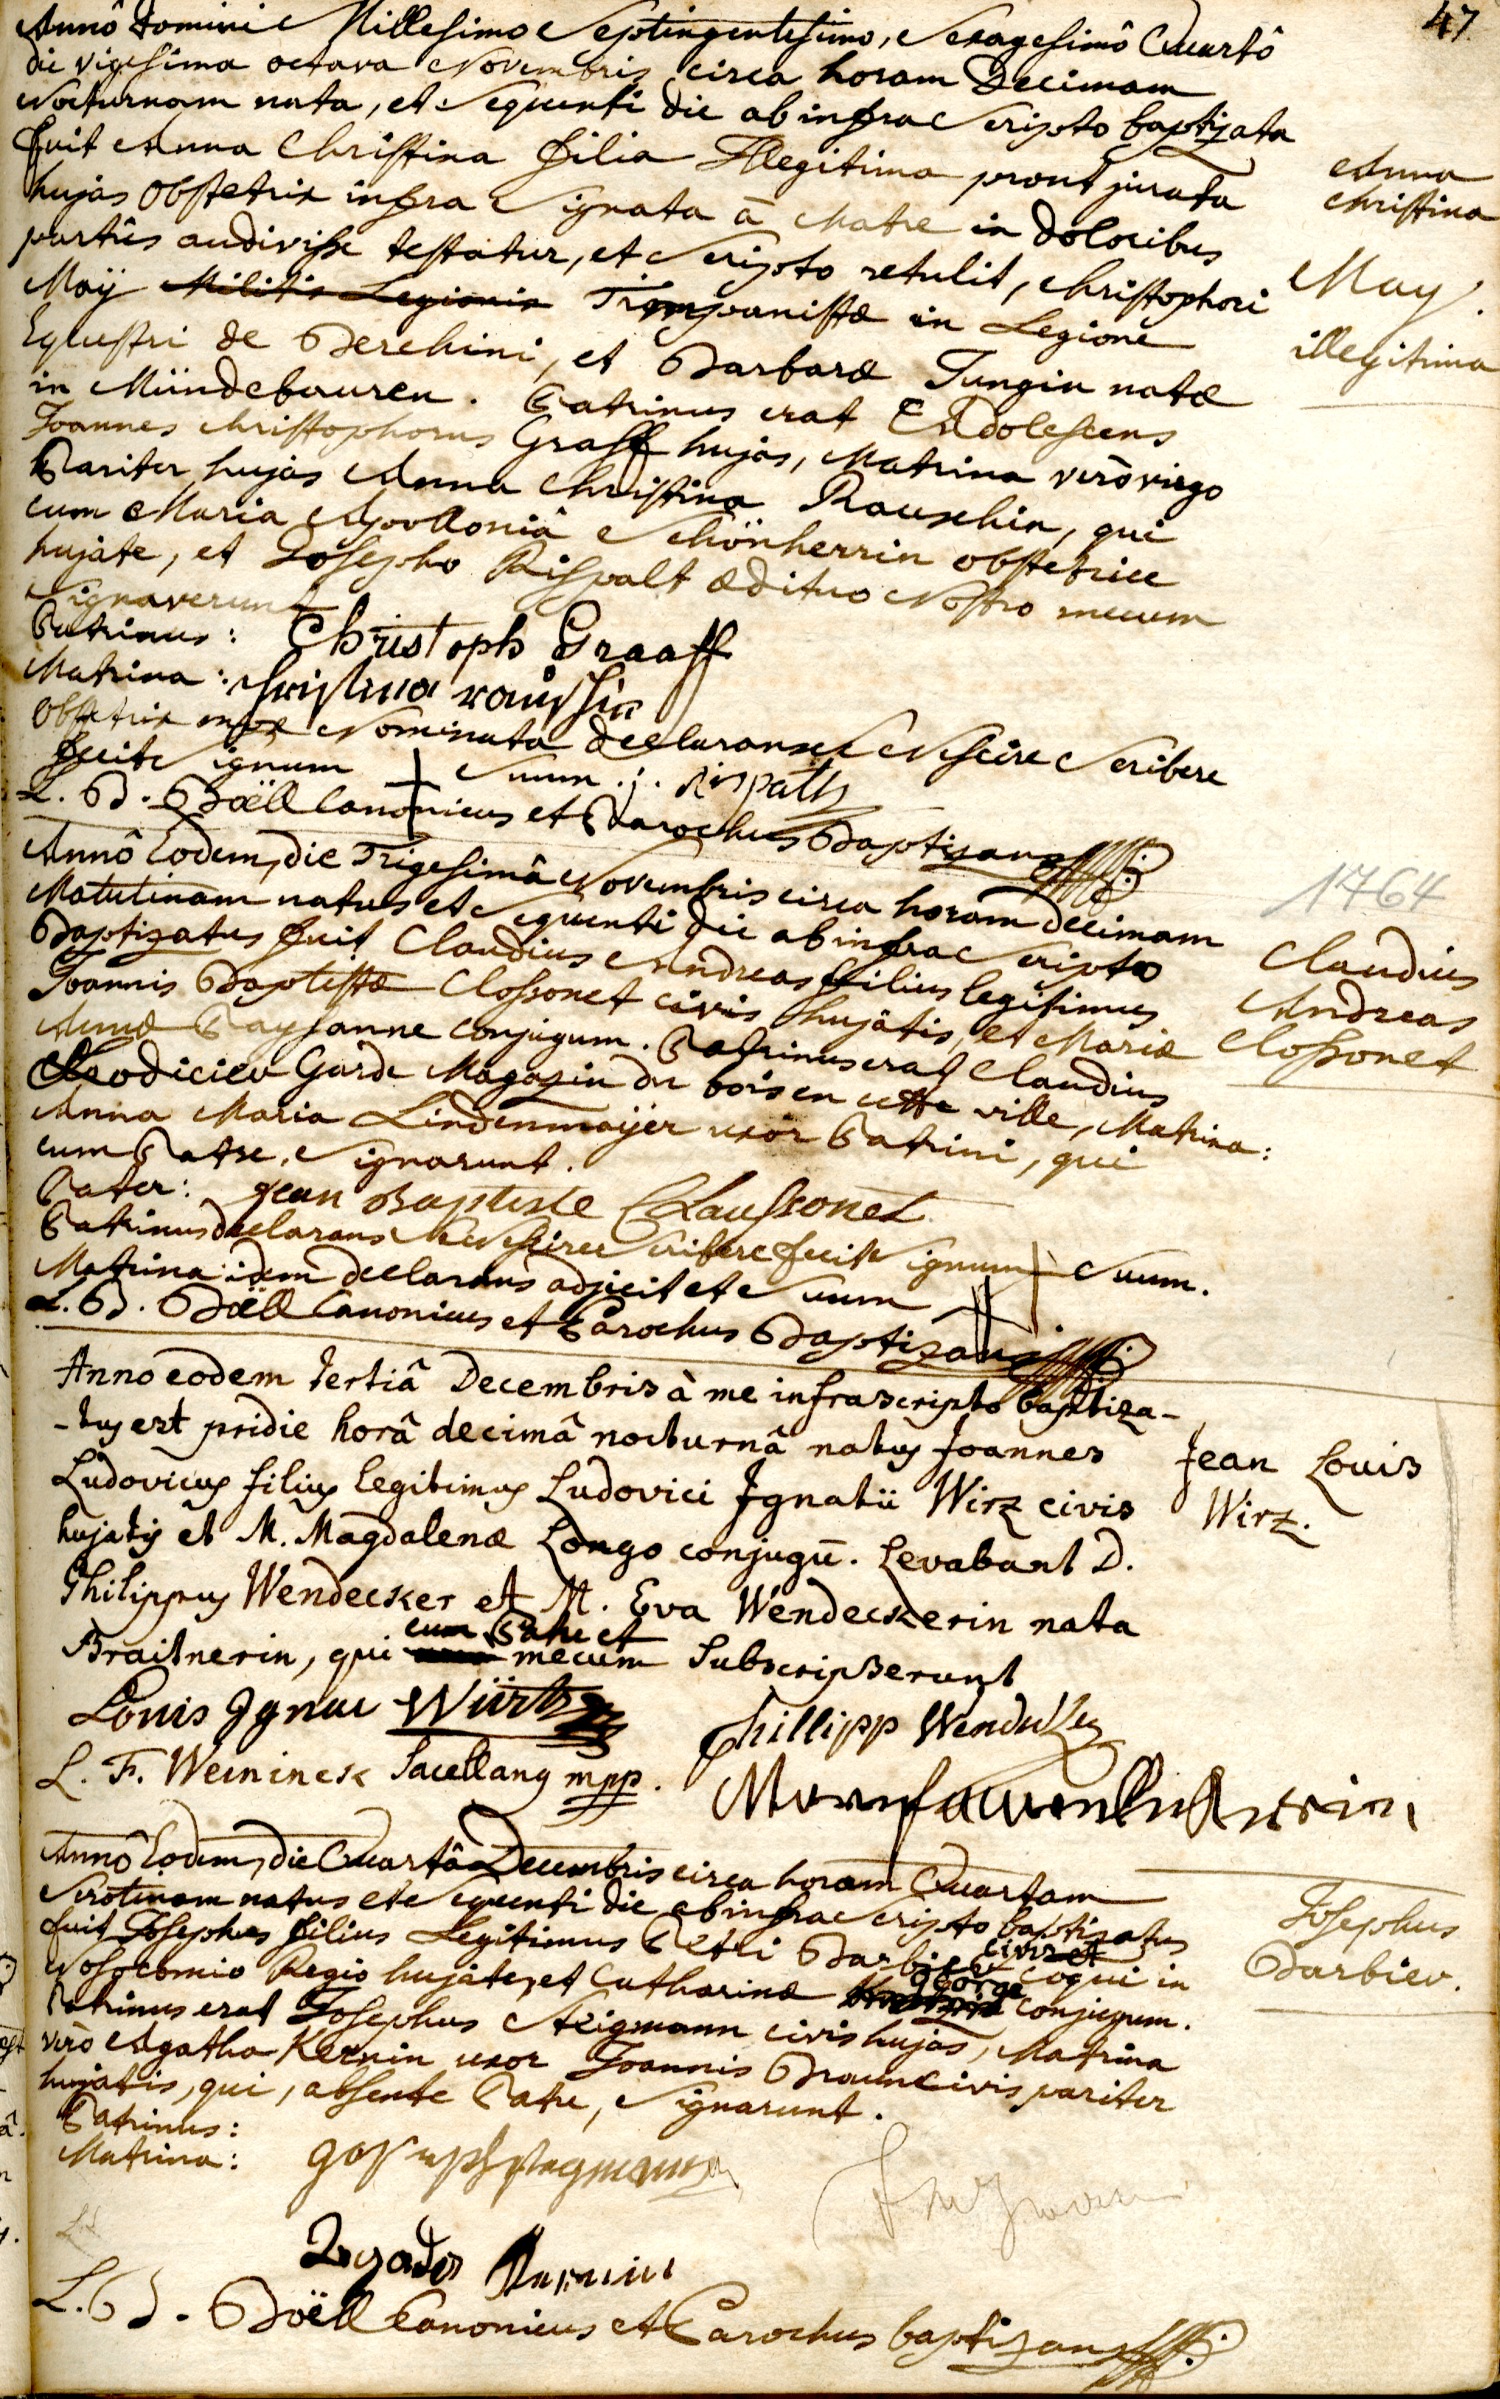 47
Annô Domini Millesimo Septingentesimo, Sexagesimô Quartô
die vigesima octava Novembris circa horam Decimam
Nocturnam nata, et sequenti die ab infra scripto baptizata
fuit Anna Christina filia Illegitima prout jurata
hujas obstetrix infra signata â Matre in doloribus
partûs audivisse testatur, et scripto retulit, Christophori
Maÿ Militis Legionis Timpanistæ in Legione
Equestri de Berchini, et Barbaræ Jungin natæ
in Mündebauren. Patrinus erat Adolescens
Joannes Christophorus Graff hujas, Matrina verò virgo
Pariter hujas Anna Christina Rauschin, qui
cum Maria Apolloniâ Schönherrin obstetrice
hujate, et Josepho Rispalt ædituo Nostro mecum
signaverunt
Anna
Christina
May.
illegitima
Patrinus: Christoph Graaff
Matrina: Christina rauschin
Obstetrix Nominata declarans se Nescire scribere
fecit signum + suum. j. rispalt
L. B. Böëll Canonicus et Parochus Baptizans
1764
Annô Eodem, die Trigesimâ Novembris circa horam decimam
Matutinam natus et sequenti die ab infra scripto
Baptizatus fuit Claudius Andreas filius legitimus
Joannis Baptistæ Clossonet civis hujâtis, et Mariæ
Annæ Paysanne conjugum. Patrinus erat Claudius
Garde Magazin du bois en cette ville, Matrina:
Anna Maria Lindenmaÿer uxor Patrini, qui
cum Patre, signarunt.
Claudius
Andreas
Clossonet
Pater: Jean Baptiste Claussonet
Patrinus declarans se Nescire scribere fecit signum + suum.
Matrina idem declarans adjecit et suum
L. B. Böëll Canonicus et Parochus Baptizans
Anno eodem tertiâ Decembris à me infrascripto baptiza-
-tus est pridie horâ decimâ nocturnâ natus Joannes
Ludovicus filius legitimus Ludovici Ignatii Wirz civis
hujatis et M. Magdalenæ Longo conjugū. Levabant D.
Philippus Wendecker et M. Eva Wendeckerin nata
cum Patre et
Braitnerin, qui mecum subscripserunt
Jean Louis
Wirz.
Louis Ignac Würtz
Phillipp
L. F. Weininck Sacellanus mpp.
Annô Eodem, die Quartâ Decembris circa horam Quartam
serotinam natus et sequenti die ab infra scripto baptizatus
fuit Josephus filius Legitimus Petri Barbier civis et coqui in
Nosocomio Regio hujate, et Catharinæ George conjugum.
Patrinus erat Josephus Steigmann civis hujas, Matrina
verò Agatha Kernin uxor Joannis Braun civis pariter
hujatis, qui, absente Patre, signarunt.
Josephus
Barbier.
Patrinus:
Matrina:
L. B. Böëll Canonicus et Parochus baptizans